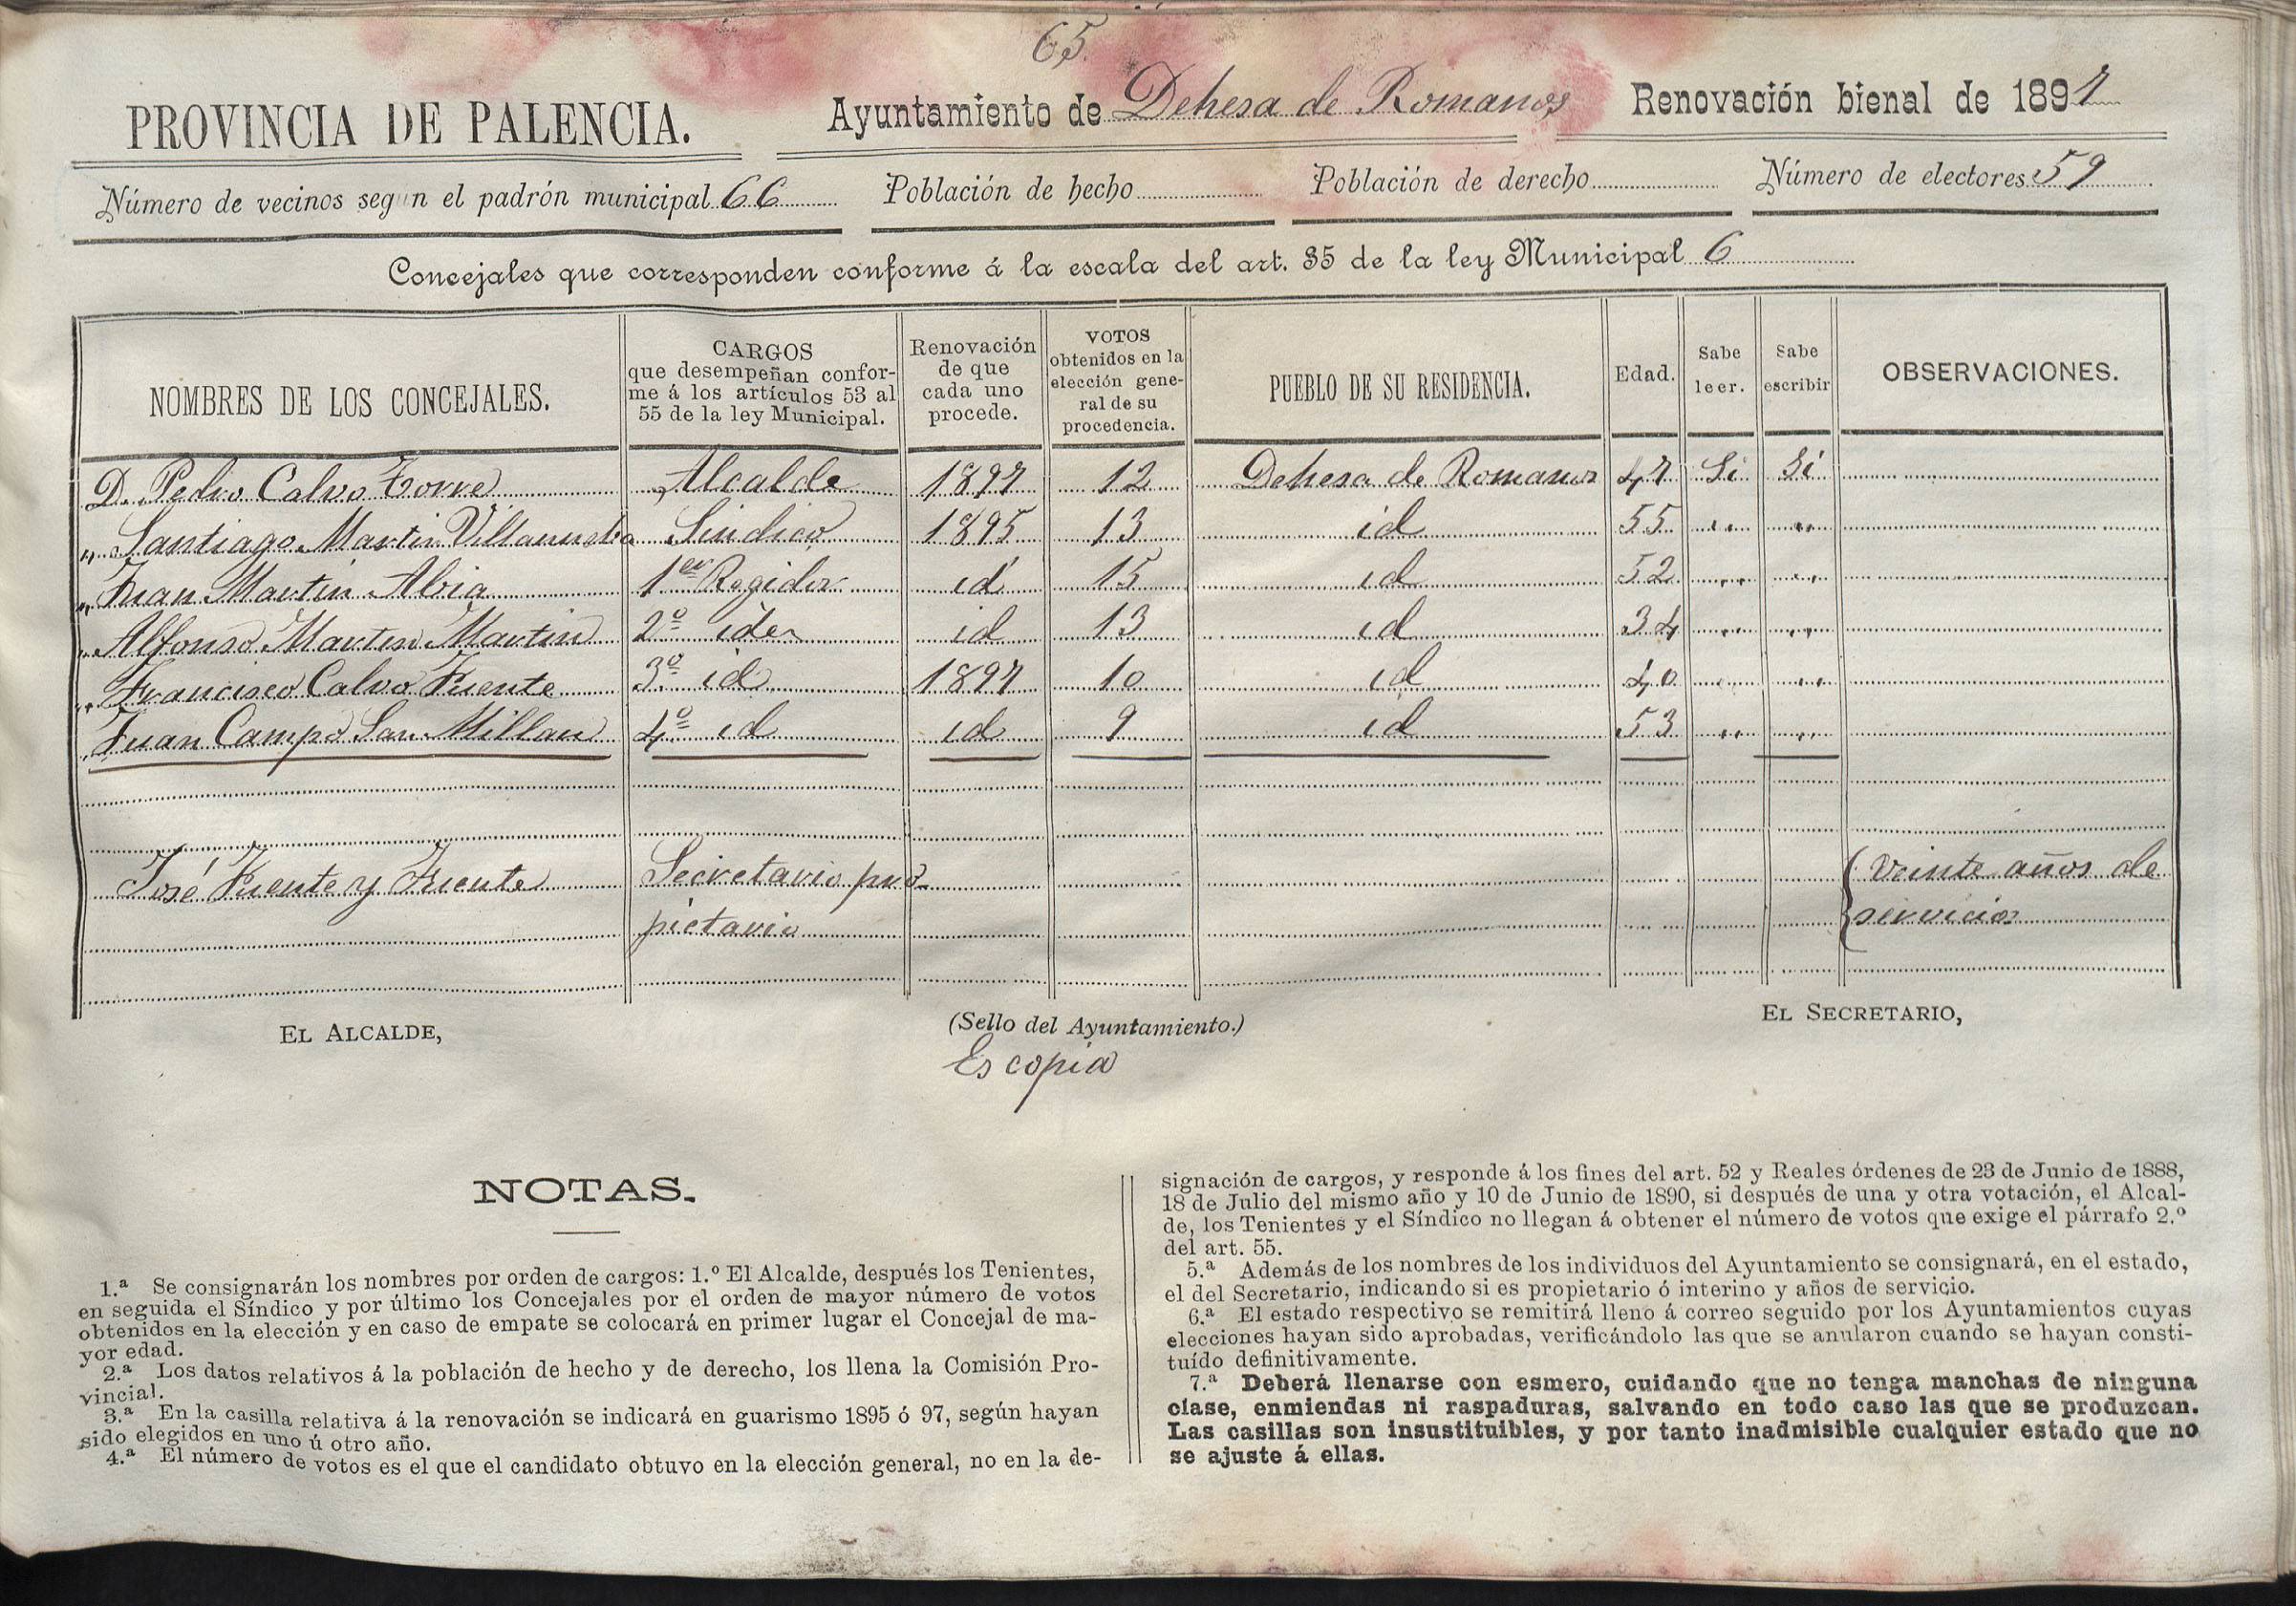 65
PROVINCIA DE PALENCIA. Ayuntamiento de Dehesa de Romanos Renovación bienal de 1897
Número de vecinos según el padrón municipal 66 Población de hecho Población de derecho Número de electores 59
Concejales que corresponden conforme á la escala del art. 35 de la ley Municipal 6
NOMBRES DE LOS CONCEJALES. CARGOS que desempeñan conforme á los artículos 53 al 55 de la ley Municipal. Renovación de que cada uno procede. VOTOS obtenidos en la elección general de su procedencia. PUEBLO DE SU RESIDENCIA. Edad. Sabe leer. Sabe escribir OBSERVACIONES.
D. Pedro Calvo Torre Alcalde 1897 12 Dehesa de Romanos 47 Si Si
" Santiago Martin Villanueba Sindico 1895 13 id 55 " "
" Juan Martin Abia 1er Regidor id 15 id 52 " "
" Alfonso Martin Martin 2º idem id 13 id 34 " "
" Francisco Calvo Fuente 3º id 1897 10 id 40 " "
Juan Campo San Millan 4º id id 9 id 53 " "
José Fuente y Fuente Secretario pro- Veinte años de
pietario servicio
EL ALCALDE, (Sello del Ayuntamiento.) EL SECRETARIO,
Es copia
NOTAS.
1.ª Se consignarán los nombres por orden de cargos: 1.º El Alcalde, después los Tenientes,
en seguida el Síndico y por último los Concejales por el orden de mayor número de votos
obtenidos en la elección y en caso de empate se colocará en primer lugar el Concejal de ma-
yor edad.
2.ª Los datos relativos á la población de hecho y de derecho, los llena la Comisión Pro-
vincial.
3.ª En la casilla relativa á la renovación se indicará en guarismo 1895 ó 97, según hayan
sido elegidos en uno ú otro año.
4.ª El número de votos es el que el candidato obtuvo en la elección general, no en la de-
signación de cargos, y responde á los fines del art. 52 y Reales órdenes de 23 de Junio de 1888,
18 de Julio del mismo año y 10 de Junio de 1890, si después de una y otra votación, el Alcal-
de, los Tenientes y el Síndico no llegan á obtener el número de votos que exige el párrafo 2.º
del art. 55.
5.ª Además de los nombres de los individuos del Ayuntamiento se consignará, en el estado,
el del Secretario, indicando si es propietario ó interino y años de servicio.
6.ª El estado respectivo se remitirá lleno á correo seguido por los Ayuntamientos cuyas
elecciones hayan sido aprobadas, verificándolo las que se anularon cuando se hayan consti-
tuído definitivamente.
7.ª Deberá llenarse con esmero, cuidando que no tenga manchas de ninguna
clase, enmiendas ni raspaduras, salvando en todo caso las que se produzcan.
Las casillas son insustituibles, y por tanto inadmisible cualquier estado que no
se ajuste á ellas.